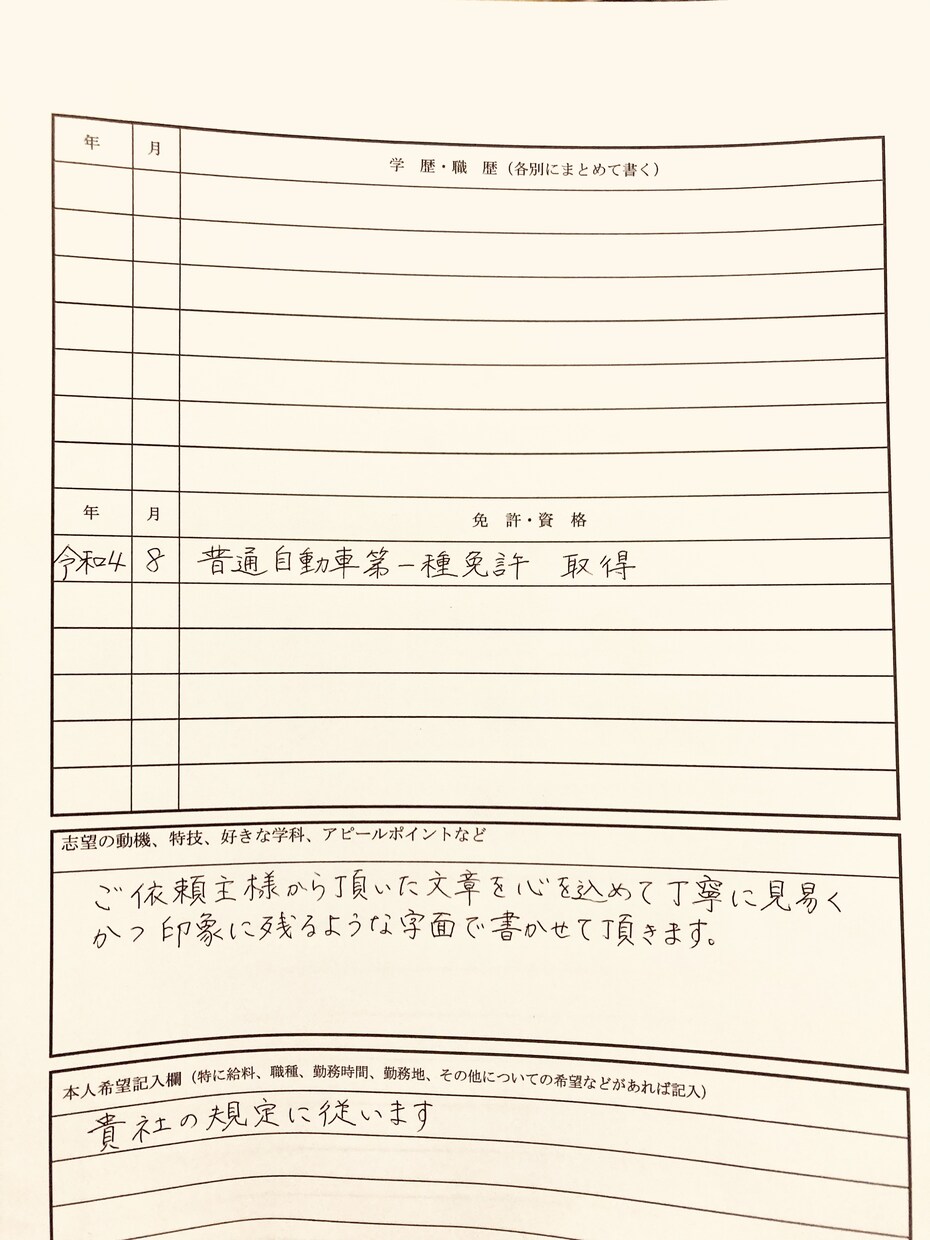 年 月 学 歴・職 歴(各別にまとめて書く)
年 月 免 許・資 格
令和4 8 普通自動車第一種免許 取得
志望の動機、特技、好きな学科、アピールポイントなど
ご依頼主様から頂いた文章を心を込めて丁寧に見易く
かつ印象に残るような字面で書かせて頂きます。
本人希望記入欄(特に給料、職種、勤務時間、勤務地、その他についての希望などがあれば記入)
貴社の規定に従います